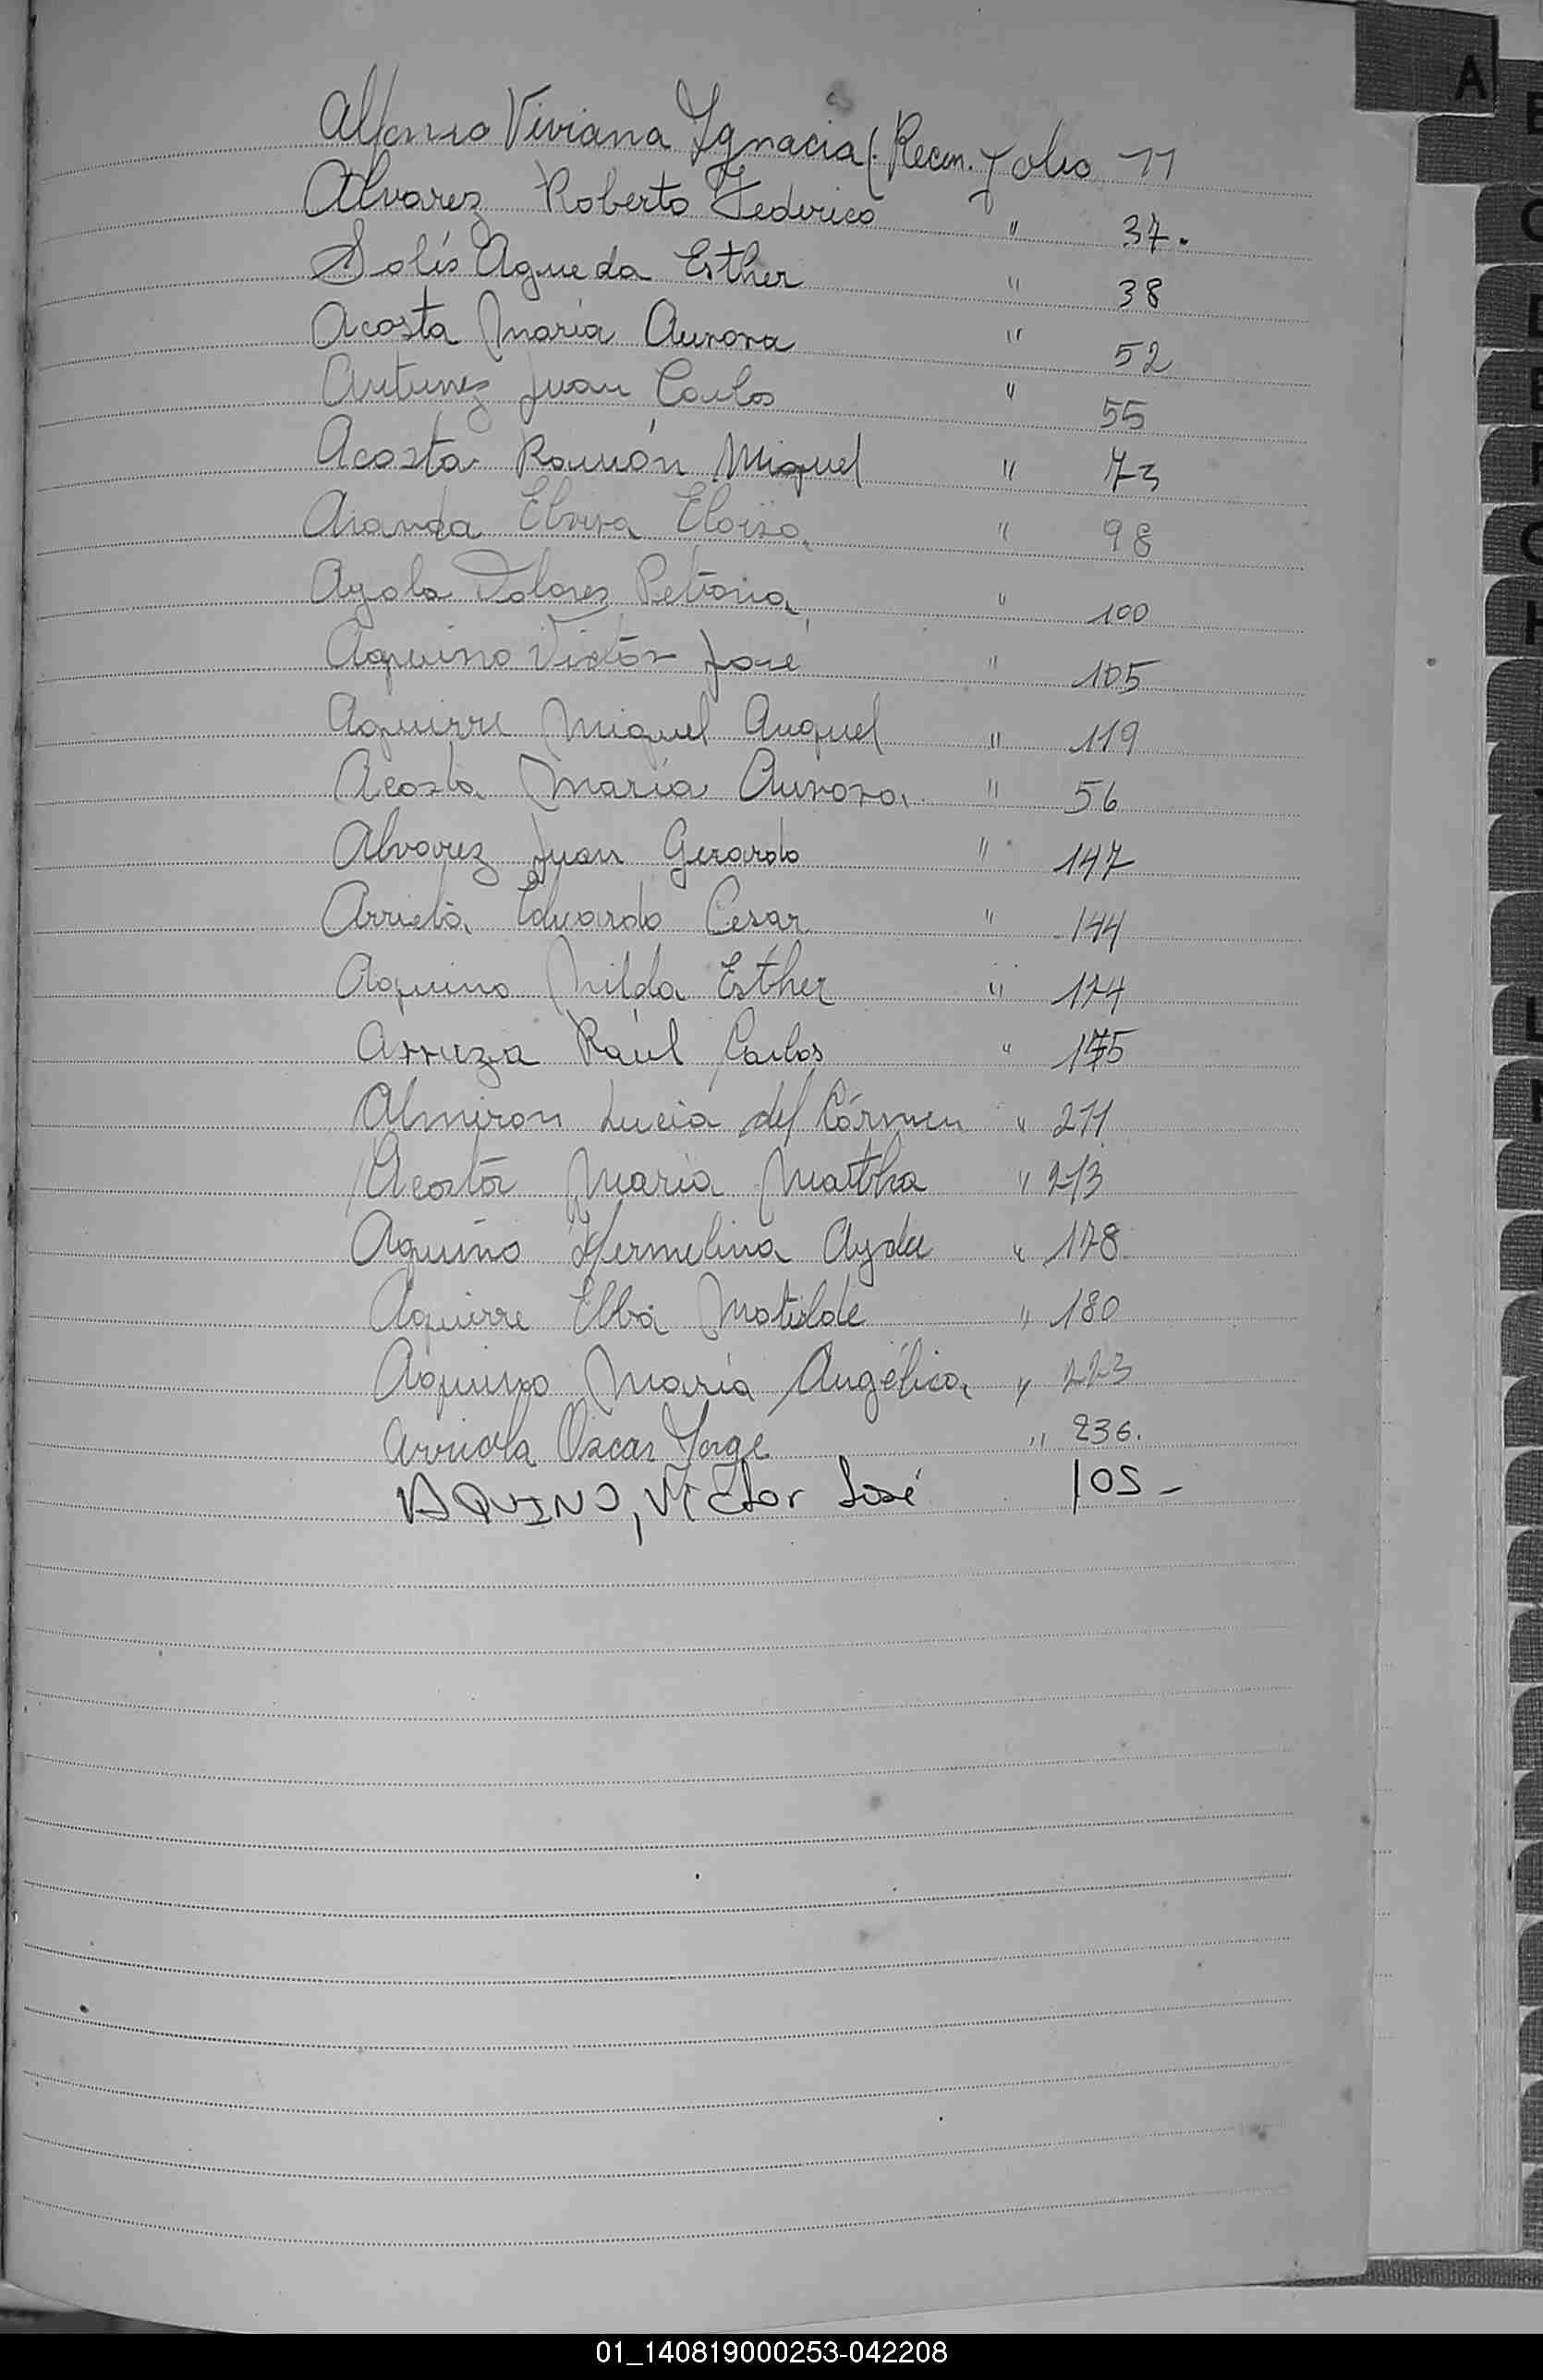 Alfonso Viviana Ygnacia (. Recon. Folio 11
Alvarez Roberto Federico " 37.
Solís Agueda Esther " 38
Acosta María Aurora " 52
Antunez Juan Carlos " 55
Acosta Ramón Miguel " 73
Aranda Elvira Eloisa " 98
Ayala Dolores Petrona " 100
Aquino Victór José " 105
Aguirre Miguel Anguel " 119
Acosta María Aurora " 56
Alvarez Juan Gerardo " 147
Arrieta Eduardo Cesar " 144
Aquino Nilda Esther " 174
Arruza Raúl Carlos " 175
Almiron Lucia del Cármen " 211
Acosta María Martha " 213
Aquino Hermelina Ayda " 178
Aguirre Elba Matilde " 180
Aquino María Angélica " 223
Arriola Oscar Jorge " 236.
AQUINO, Victor José 105-
A
B
C
D
E
F
G
H
L
01_140819000253-042208